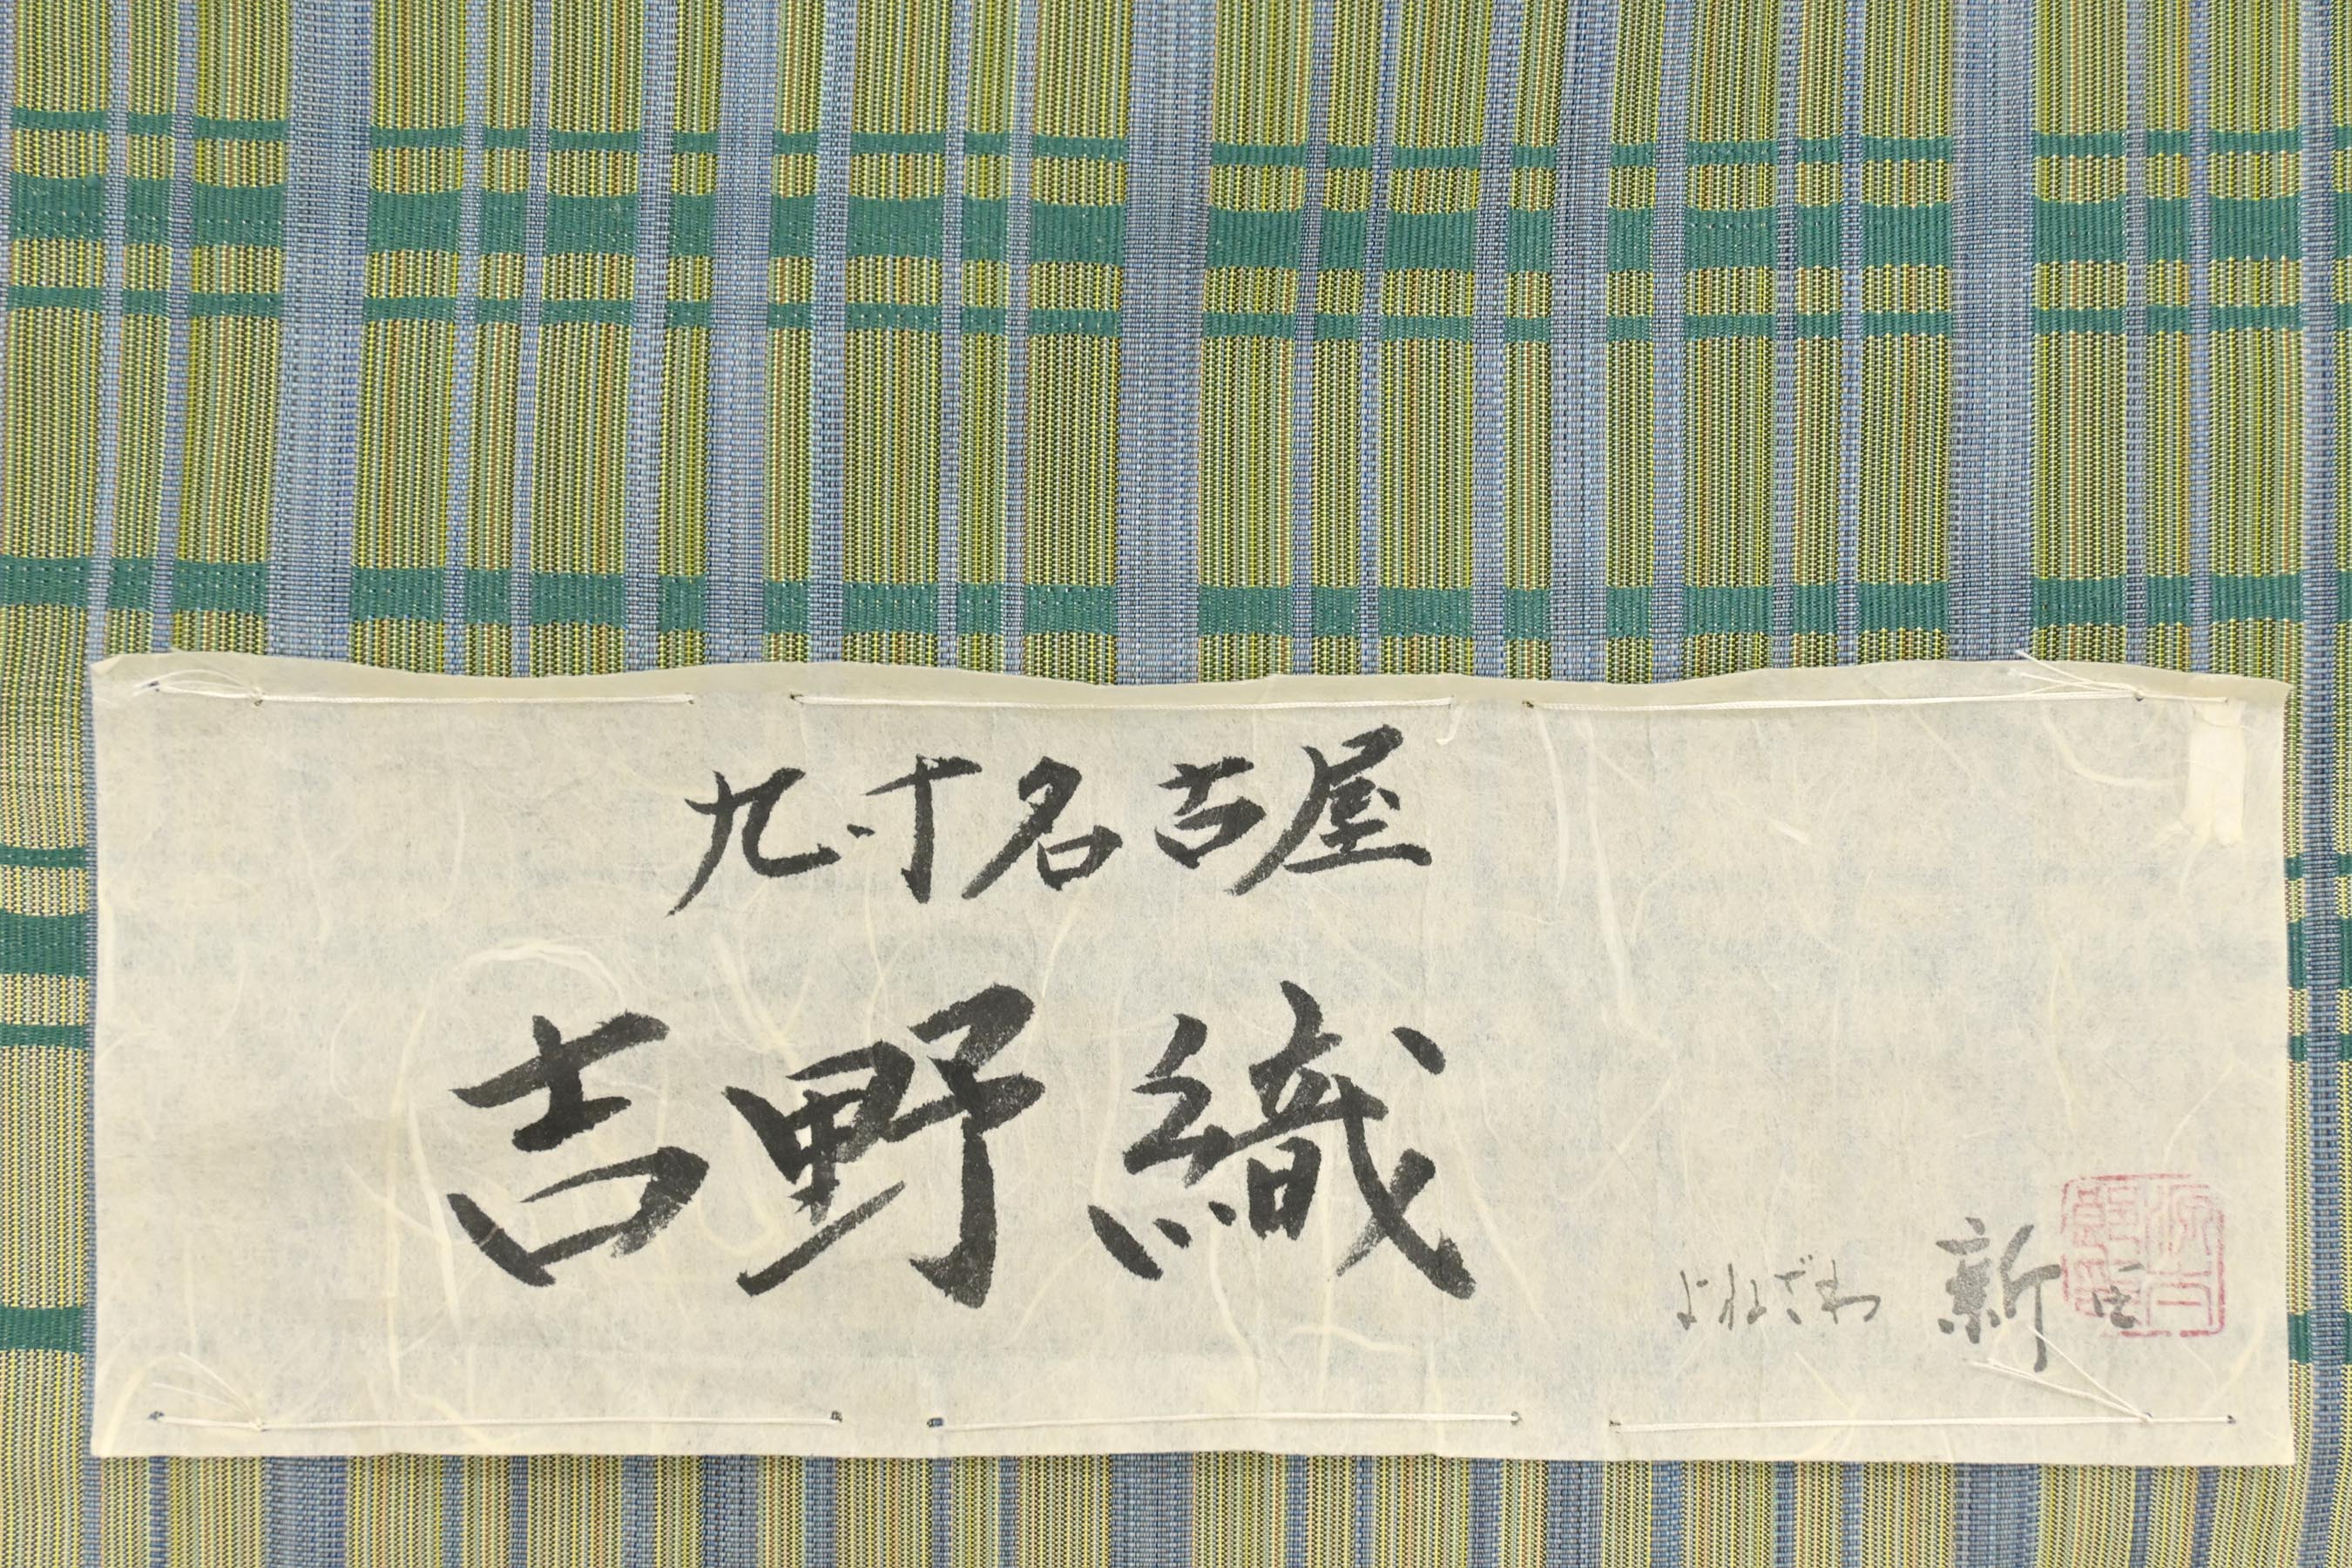 九寸名古屋
吉野織
よねざわ 新